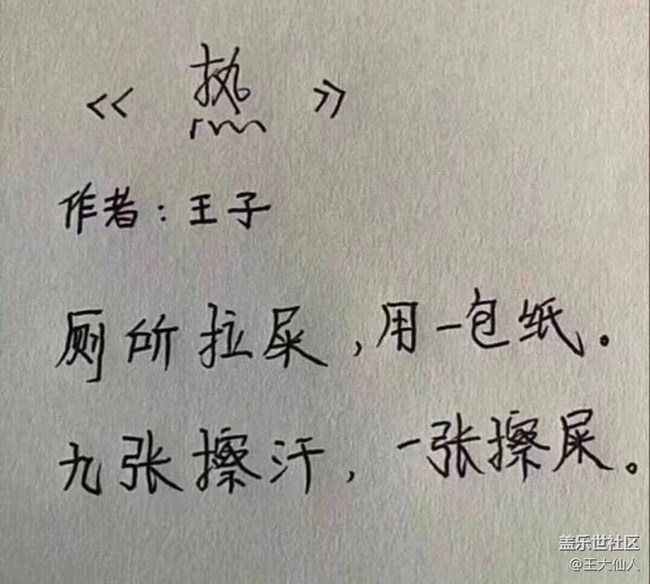 《热》
作者：王子
厕所拉屎，用一包纸。
九张擦汗，一张擦屎。
盖乐世社区
@王大仙人